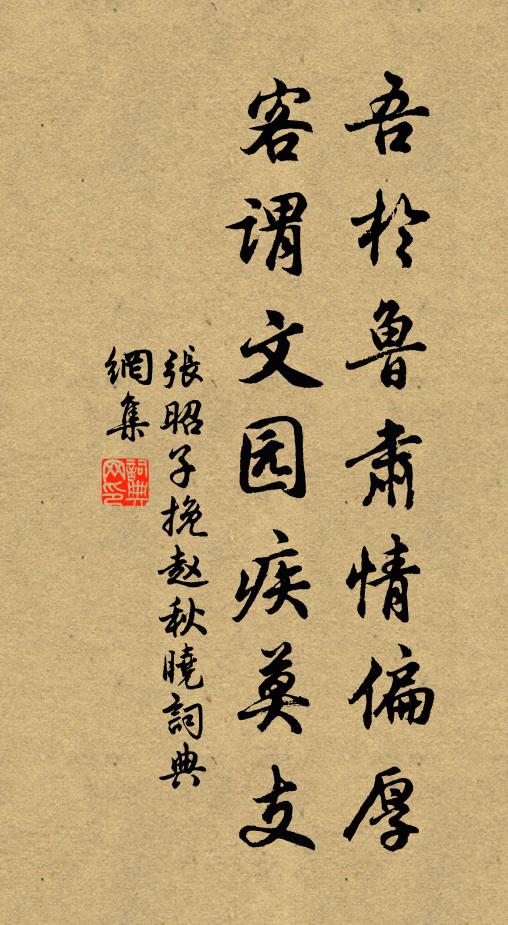 吾於魯肅情偏厚
客謂文园疾莫支
張昭子挽赵秋曉詞典
網集
詞典
网印